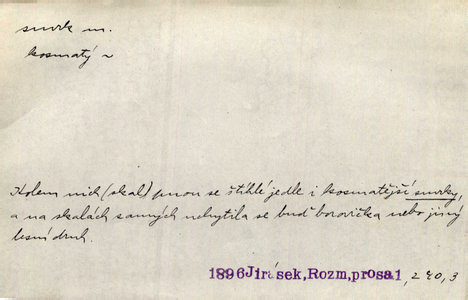 smrk m.
kosmatý ~
Kolem nich (skal) pnou se štíhlé jedle i kosmatější smrky,
a na skalách samých uchytila se buď borovička nebo jiný
lesní druh.
1896 Jirásek, Rozm, prosa1, 240, 3